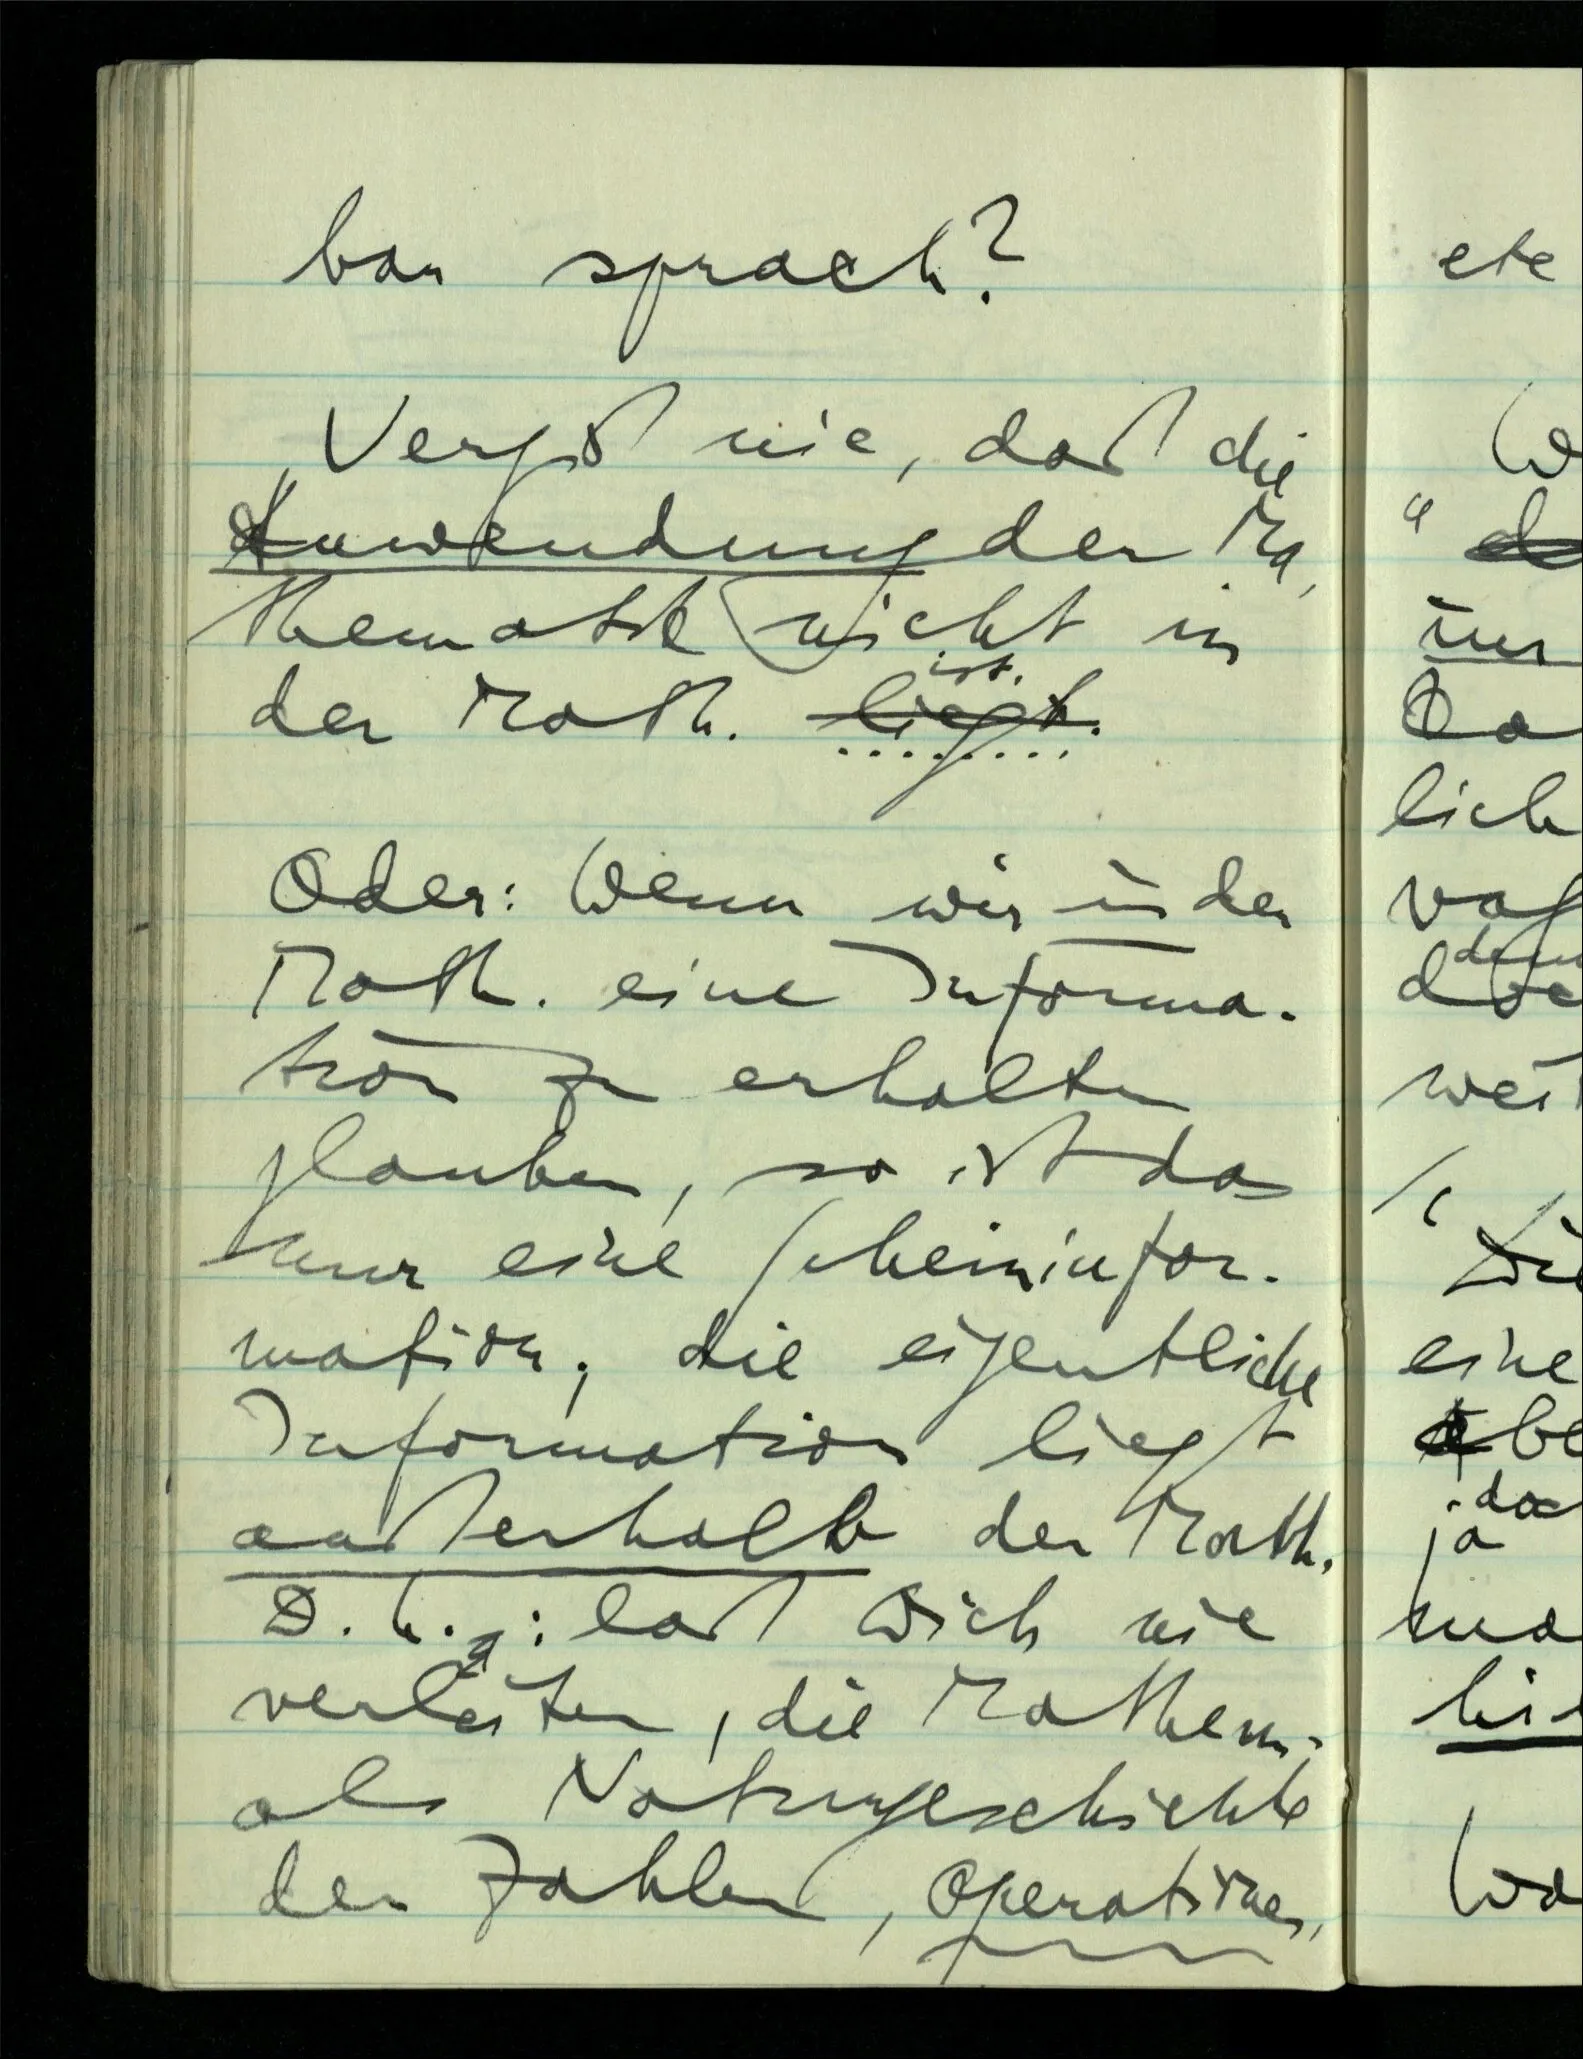 bar sprach?
Vergiß nie, daß die
Anwendung der Ma,
thematik nicht in
ist.
der Math. liegt.
Oder: Wenn wir in der
Math. eine Informa-
tion zu erhalten
glauben, so ist das
nur eine Scheininfor-
mation; die eigentliche
Information liegt
außerhalb der Math.
D.h.: laß Dich nie
verleiten, die Mathem.
als Naturgeschichte
der Zahlen, Operationen,
ete
"
lich
eine
ja